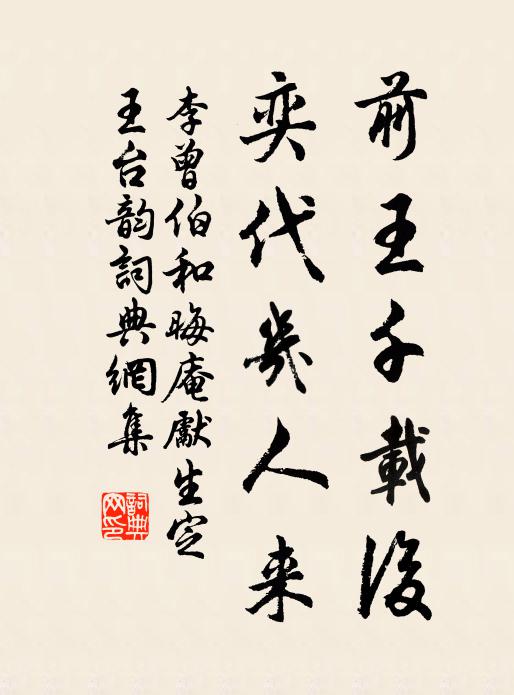 前王千載後
奕代幾人来
李曾伯和晦庵獻生定
王台韵詞典網集
詞典網印